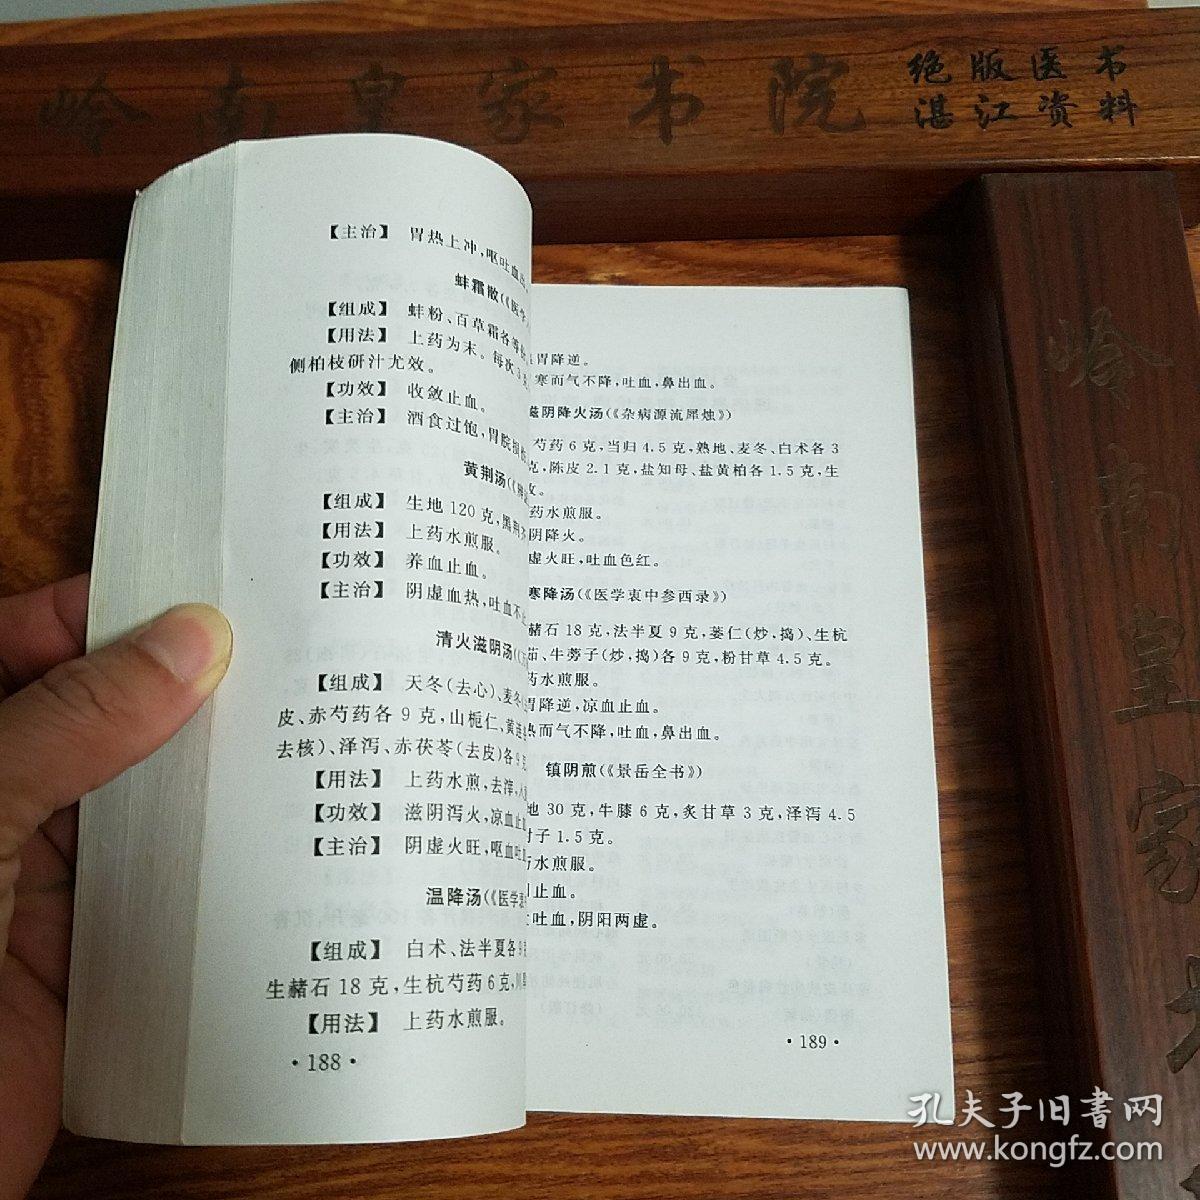 岭南皇家书院
绝版医书
湛江资料
【主治】 胃热上冲,呕吐血
蚌霜散(《医学
【组成】 蚌粉、百草霜各等
【用法】 上药为末。每次3
侧柏枝研汁尤效。
【功效】 收敛止血。
【主治】 酒食过饱,胃脘
黄荆汤(《
【组成】 生地120克,黑荆
【用法】 上药水煎服。
【功效】 养血止血。
【主治】 阴虚血热,吐血不
清火滋阴汤(《
【组成】 天冬(去心)、麦冬(
皮、赤芍药各9克,山栀仁、黄连
去核)、泽泻、赤茯苓(去皮)各9克
【用法】 上药水煎,去滓,入
【功效】 滋阴泻火,凉血止
【主治】 阴虚火旺,呕血吐
温降汤(《医学衷
【组成】 白术、法半夏各9
生赭石18克,生杭芍药6克,川
【用法】 上药水煎服。
·188·
胃降逆。
寒而气不降,吐血,鼻出血。
滋阴降火汤(《杂病源流犀烛》)
芍药6克,当归4.5克,熟地、麦冬、白术各3
克,陈皮2.1克,盐知母、盐黄柏各1.5克,生
药水煎服。
阴降火。
虚火旺,吐血色红。
寒降汤(《医学衷中参西录》)
赭石18克,法半夏9克,蒌仁(炒,捣)、生杭
茹、牛蒡子(炒,捣)各9克,粉甘草4.5克。
药水煎服。
胃降逆,凉血止血。
热而气不降,吐血,鼻出血。
镇阴煎(《景岳全书》)
地30克,牛膝6克,炙甘草3克,泽泻4.5
附子1.5克。
水煎服。
止血。
吐血,阴阳两虚。
·189·
岭南皇家
孔夫子旧书网
www.kongfz.com